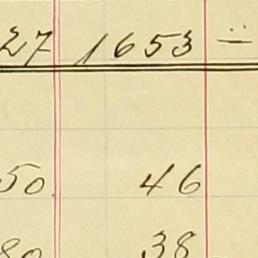 27 1653 =
50 46
80 38